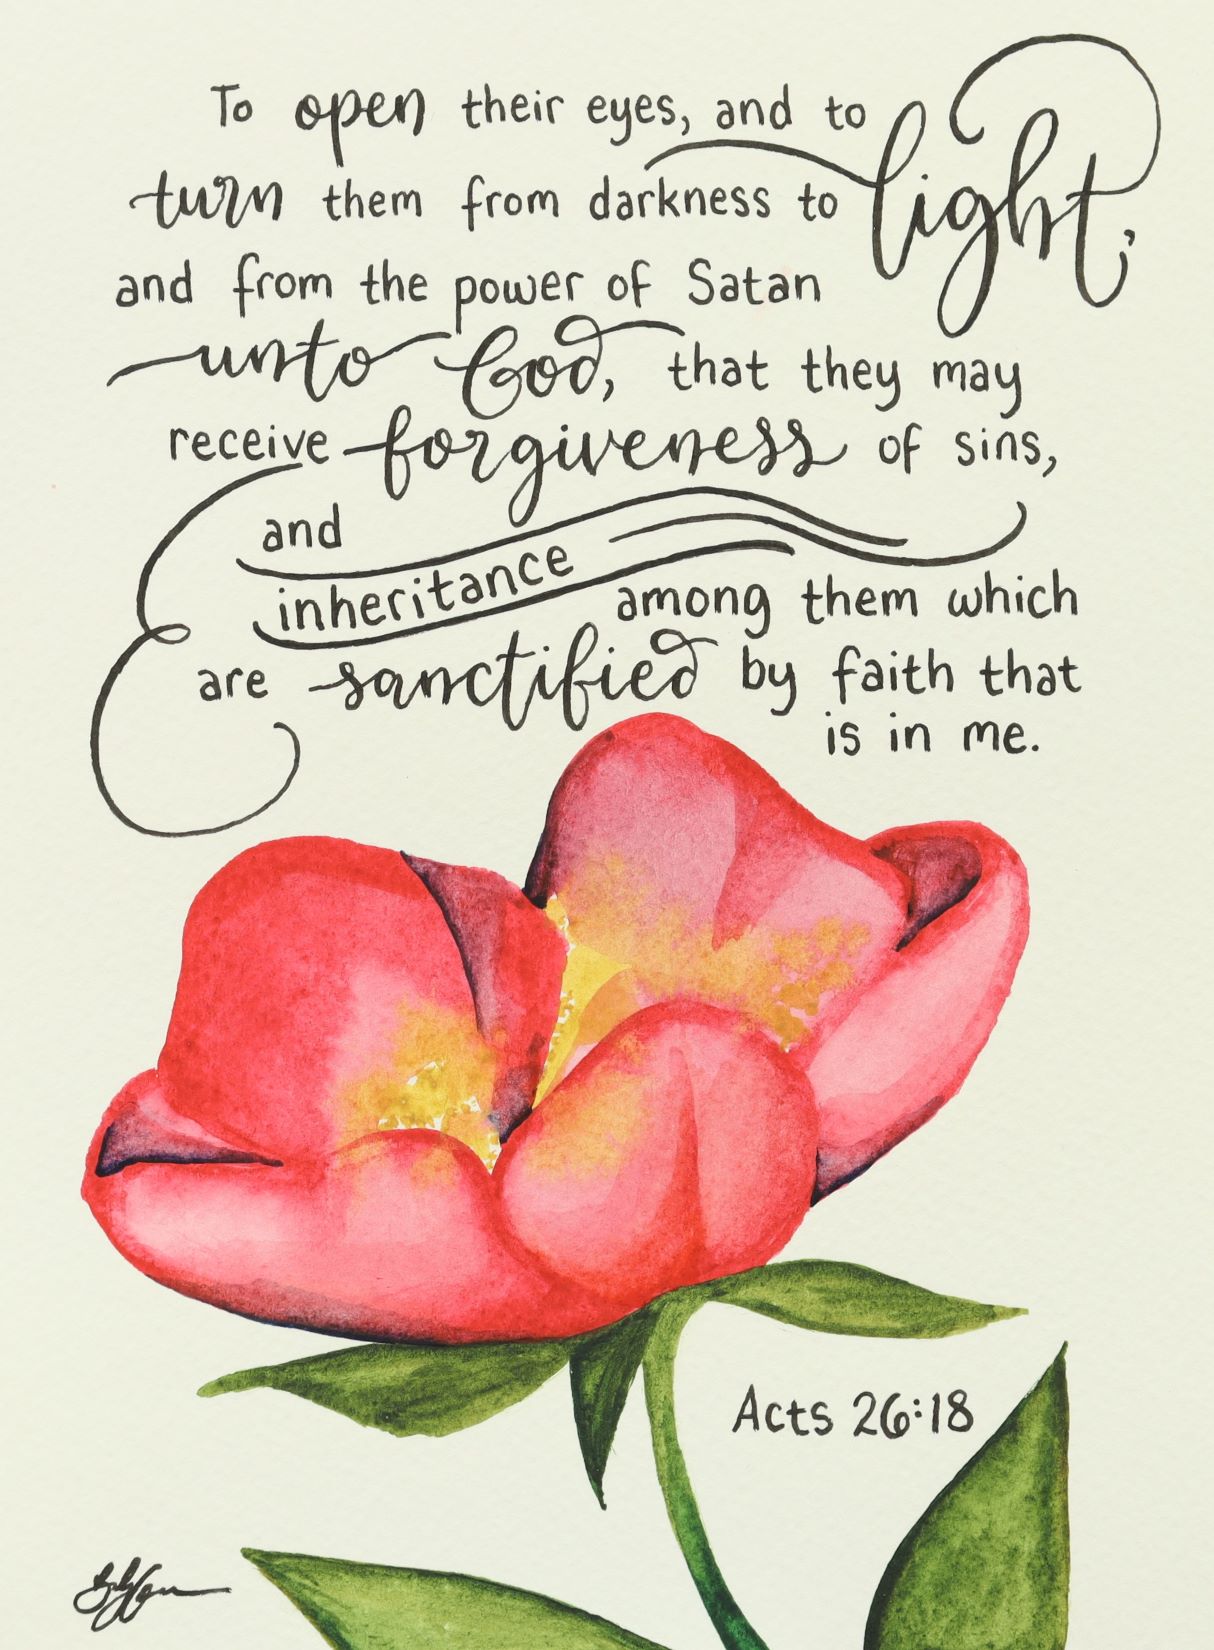 To open their eyes, and to
turn them from darkness to light,
and from the power of Satan
unto God, that they may
receive forgiveness of sins,
and
inheritance among them which
are sanctified by faith that
is in me.
Acts 26:18